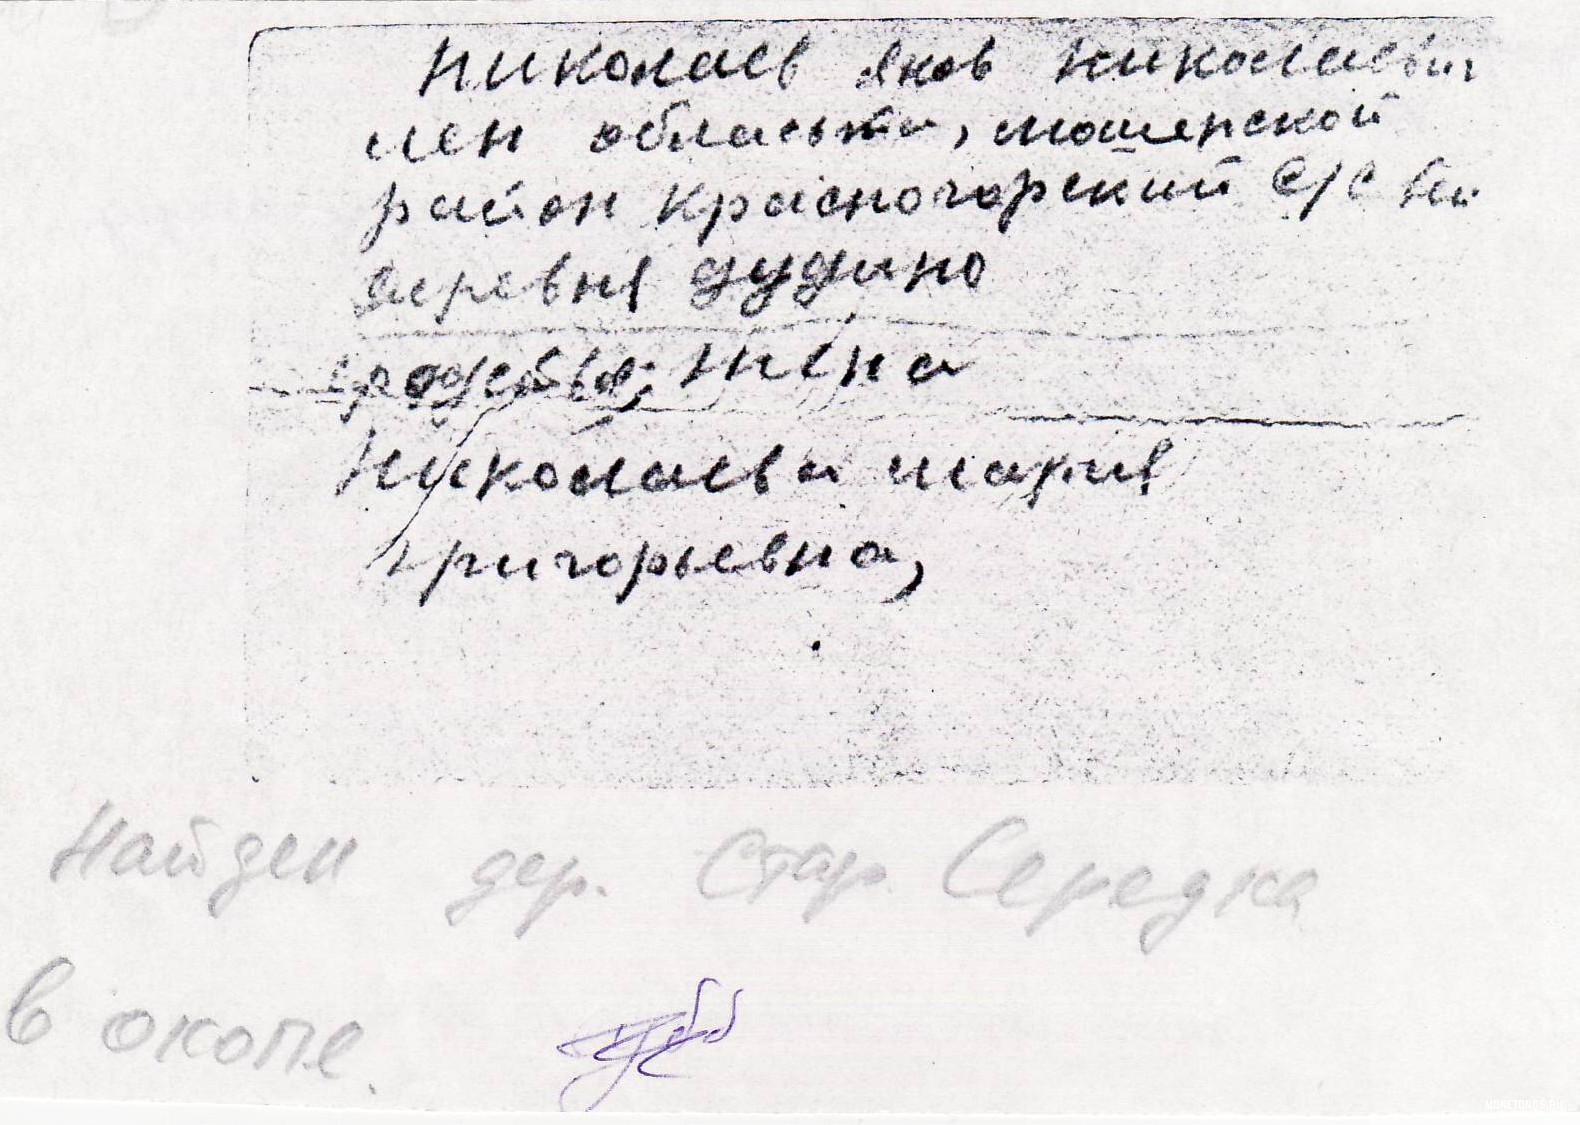 Николаев Яков Николаевич
лен областьти, мошенской
район Красногорский С/С
деревня дудино
родства; жена
Николаева мария
григорьевна,
Найден дер. Стар. Середка
в окопе.